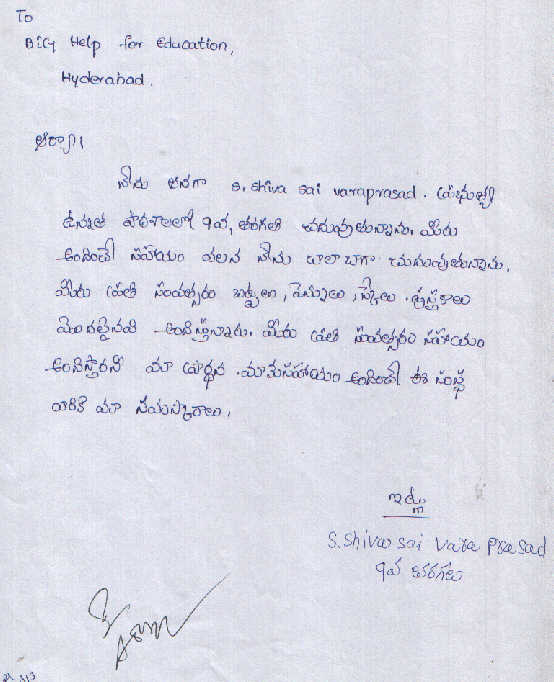 To
BiGy Help for Education,
Hyderabad.
ఆర్యా।
నేను అనగా S. Shiva Sai varaprasad.
ఉన్నత పాఠశాలలో 9వ, తరగతి చదువుతున్నాను. మీరు
అందించే సహాయం వలన నేను చాలా బాగా చదువుతున్నాను.
మీరు ప్రతి సంవత్సరం బట్టలు, పెన్నులు, స్కేలు. పుస్తకాలు
మొదలైనవి అందిస్తున్నారు. మీరు ప్రతి సంవత్సరం సహాయం
అందిస్తారని మా ప్రార్థన. మాకుసహాయం అందించే ఈ సంస్థ
వారికి మా నమస్కారాలు,
ఇట్లు
S. Shiva sai Vara Prasad
9వ తరగతి